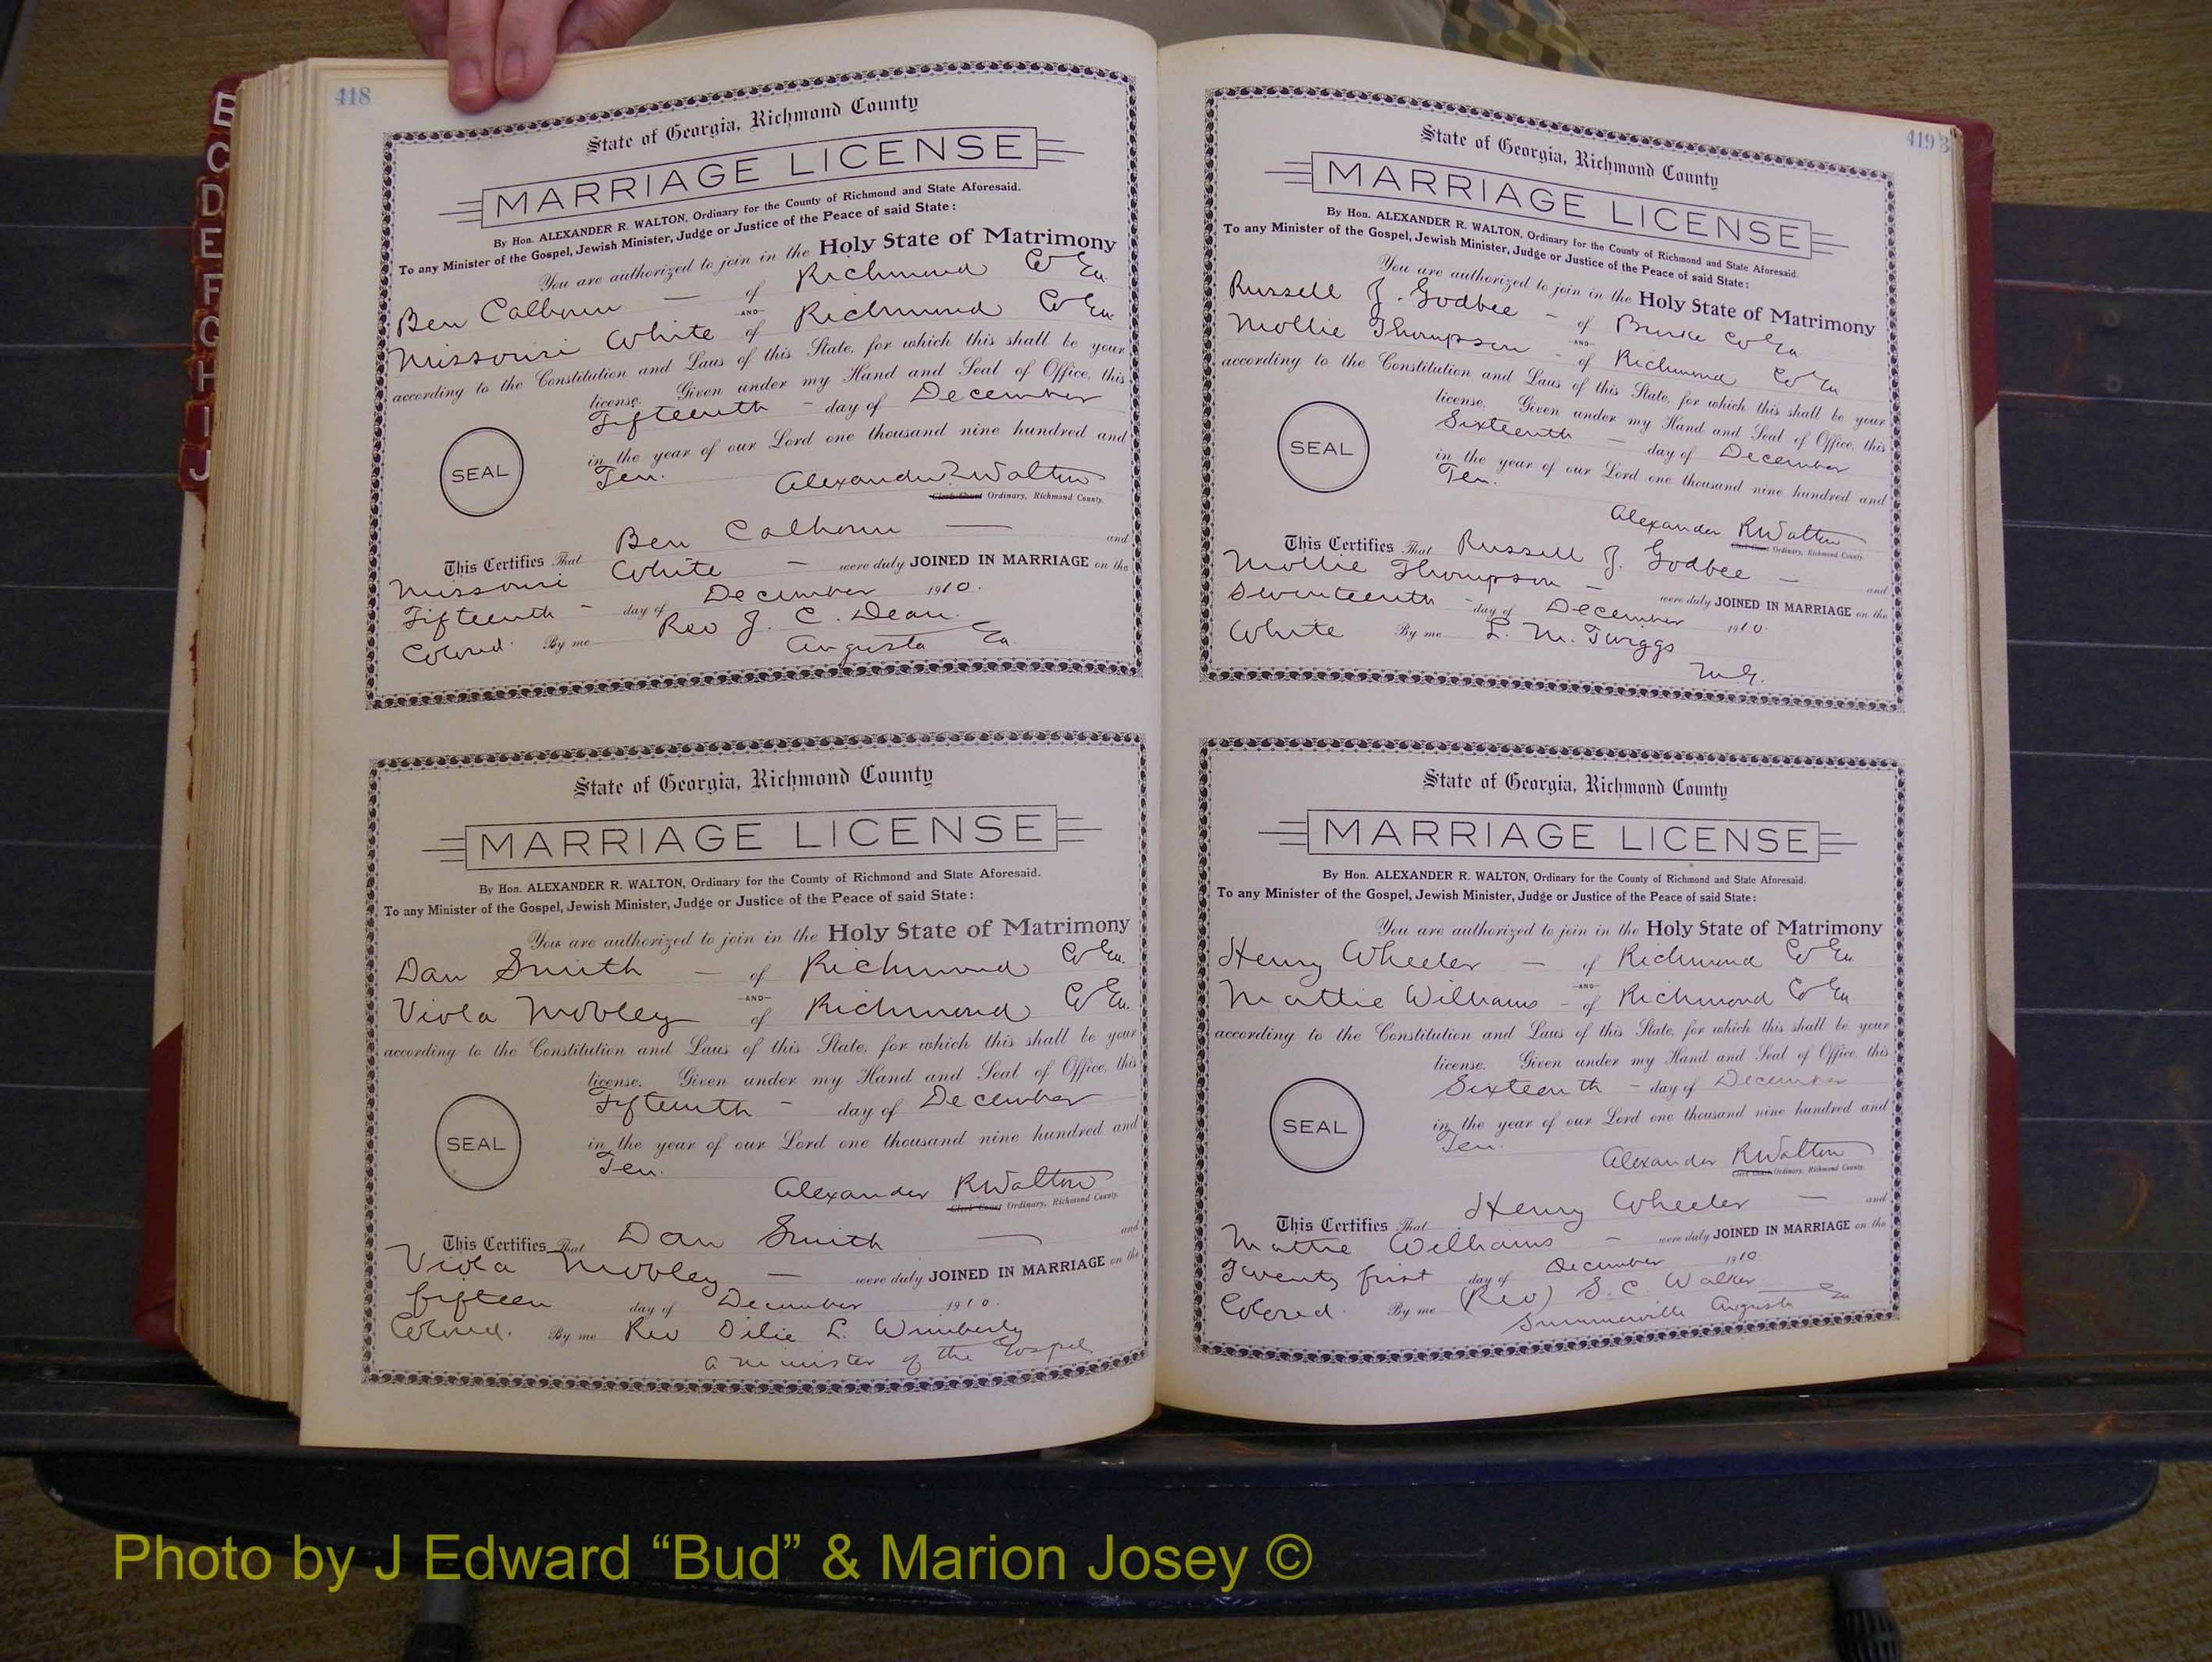 B
C
D
E
F
G
H
I
J
418
State of Georgia, Richmond County
MARRIAGE LICENSE
By Hon. ALEXANDER R. WALTON, Ordinary for the County of Richmond and State Aforesaid.
To any Minister of the Gospel, Jewish Minister, Judge or Justice of the Peace of said State:
You are authorized to join in the Holy State of Matrimony
Ben Calhoun — of Richmond Co Ga.
-AND-
Missouri White of Richmond Co Ga.
according to the Constitution and Laws of this State, for which this shall be your
license. Given under my Hand and Seal of Office, this
Fifteenth - day of December
in the year of our Lord one thousand nine hundred and
Ten.
SEAL
Alexander R Walton
Clerk Court Ordinary, Richmond County.
This Certifies That Ben Calhoun — and
Missouri White — were duly JOINED IN MARRIAGE on the
Fifteenth - day of December 1910.
Colored. By me Rev J. C. Dean.
Augusta Ga.
State of Georgia, Richmond County
MARRIAGE LICENSE
By Hon. ALEXANDER R. WALTON, Ordinary for the County of Richmond and State Aforesaid.
To any Minister of the Gospel, Jewish Minister, Judge or Justice of the Peace of said State:
You are authorized to join in the Holy State of Matrimony
Dan Smith — of Richmond Co Ga.
-AND-
Viola Mobley of Richmond Co Ga.
according to the Constitution and Laws of this State, for which this shall be your
license. Given under my Hand and Seal of Office, this
Fifteenth - day of December
in the year of our Lord one thousand nine hundred and
Ten.
SEAL
Alexander R Walton
Clerk Court Ordinary, Richmond County.
This Certifies That Dan Smith — and
Viola Mobley — were duly JOINED IN MARRIAGE on the
fifteen day of December 1910.
Colored. By me Rev Dilie L. Wimberly
a minister of the Gospel
419
State of Georgia, Richmond County
MARRIAGE LICENSE
By Hon. ALEXANDER R. WALTON, Ordinary for the County of Richmond and State Aforesaid.
To any Minister of the Gospel, Jewish Minister, Judge or Justice of the Peace of said State:
You are authorized to join in the Holy State of Matrimony
Russell J. Godbee - of Burke Co Ga
-AND-
Mollie Thompson - of Richmond Co Ga
according to the Constitution and Laws of this State, for which this shall be your
license. Given under my Hand and Seal of Office, this
Sixteenth — day of December
in the year of our Lord one thousand nine hundred and
Ten.
SEAL
Alexander R Walton
Clerk Court Ordinary, Richmond County.
This Certifies That Russell J. Godbee — and
Mollie Thompson — were duly JOINED IN MARRIAGE on the
Seventeenth - day of December 1910.
White By me L. M. Twiggs
M.G.
State of Georgia, Richmond County
MARRIAGE LICENSE
By Hon. ALEXANDER R. WALTON, Ordinary for the County of Richmond and State Aforesaid.
To any Minister of the Gospel, Jewish Minister, Judge or Justice of the Peace of said State:
You are authorized to join in the Holy State of Matrimony
Henry Wheeler — of Richmond Co Ga
-AND-
Mattie Williams - of Richmond Co Ga
according to the Constitution and Laws of this State, for which this shall be your
license. Given under my Hand and Seal of Office, this
Sixteenth - day of December
in the year of our Lord one thousand nine hundred and
Ten.
SEAL
Alexander R Walton
Clerk Court Ordinary, Richmond County.
This Certifies That Henry Wheeler — and
Mattie Williams — were duly JOINED IN MARRIAGE on the
Twenty first day of December 1910
Colored. By me (Rev) S. C. Walker
Summerville Augusta Ga
Photo by J Edward “Bud” & Marion Josey ©